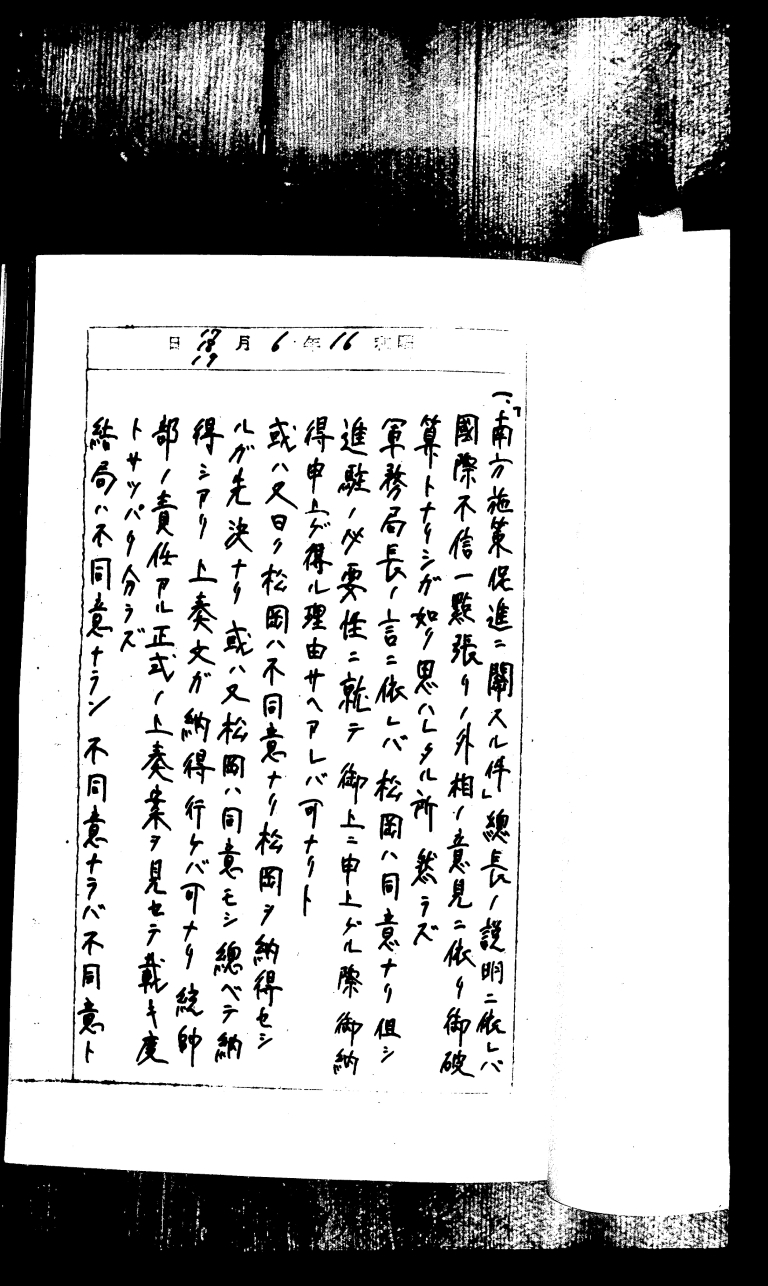 昭和16年6月17 18 19日
一、「南方施策促進ニ關スル件」總長ノ説明ニ依レバ
國際不信一點張リノ外相ノ意見ニ依リ御破
算トナリシガ如ク思ハレタル所 然ラズ
軍務局長ノ言ニ依レバ 松岡ハ同意ナリ 但シ
進駐ノ必要性ニ就テ 御上ニ申上グル際 御納
得申上ゲ得ル理由サヘアレバ可ナリト
或ハ又曰ク 松岡ハ不同意ナリ 松岡ヲ納得セシ
ルガ先決ナリ 或ハ又松岡ハ同意モシ 總ベテ納
得シアリ 上奏文ガ納得行ケバ可ナリ 統帥
部ノ責任アル正式ノ上奏案ヲ見セテ戴キ度
トサツパリ分ラズ
結局ハ不同意ナラン 不同意ナラバ不同意ト